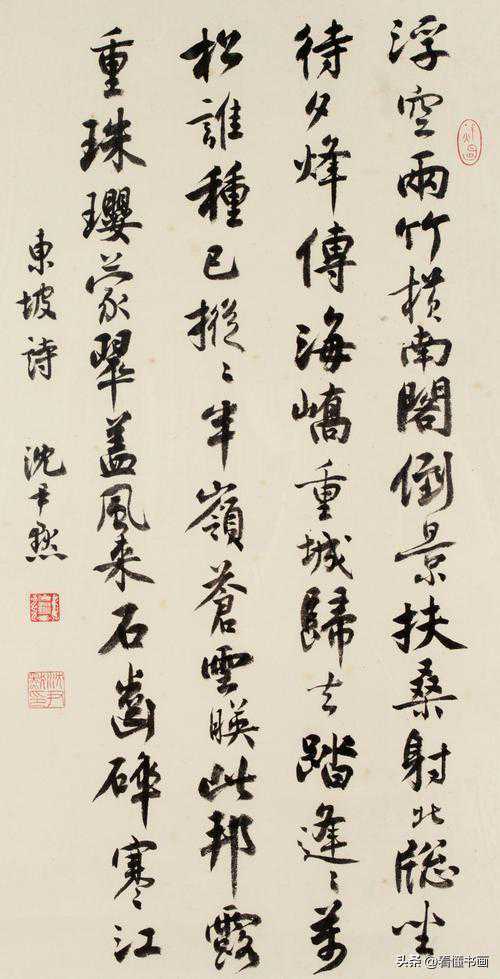 浮空兩竹橫南閣倒景扶桑射北牕坐
待夕烽傳海嶠重城歸去踏逢〻萬
松誰種已摐〻半嶺蒼雲暎此邦露
重珠瓔蒙翠蓋風来石齒碎寒江
東坡詩 沈尹默
头条 @看懂书画